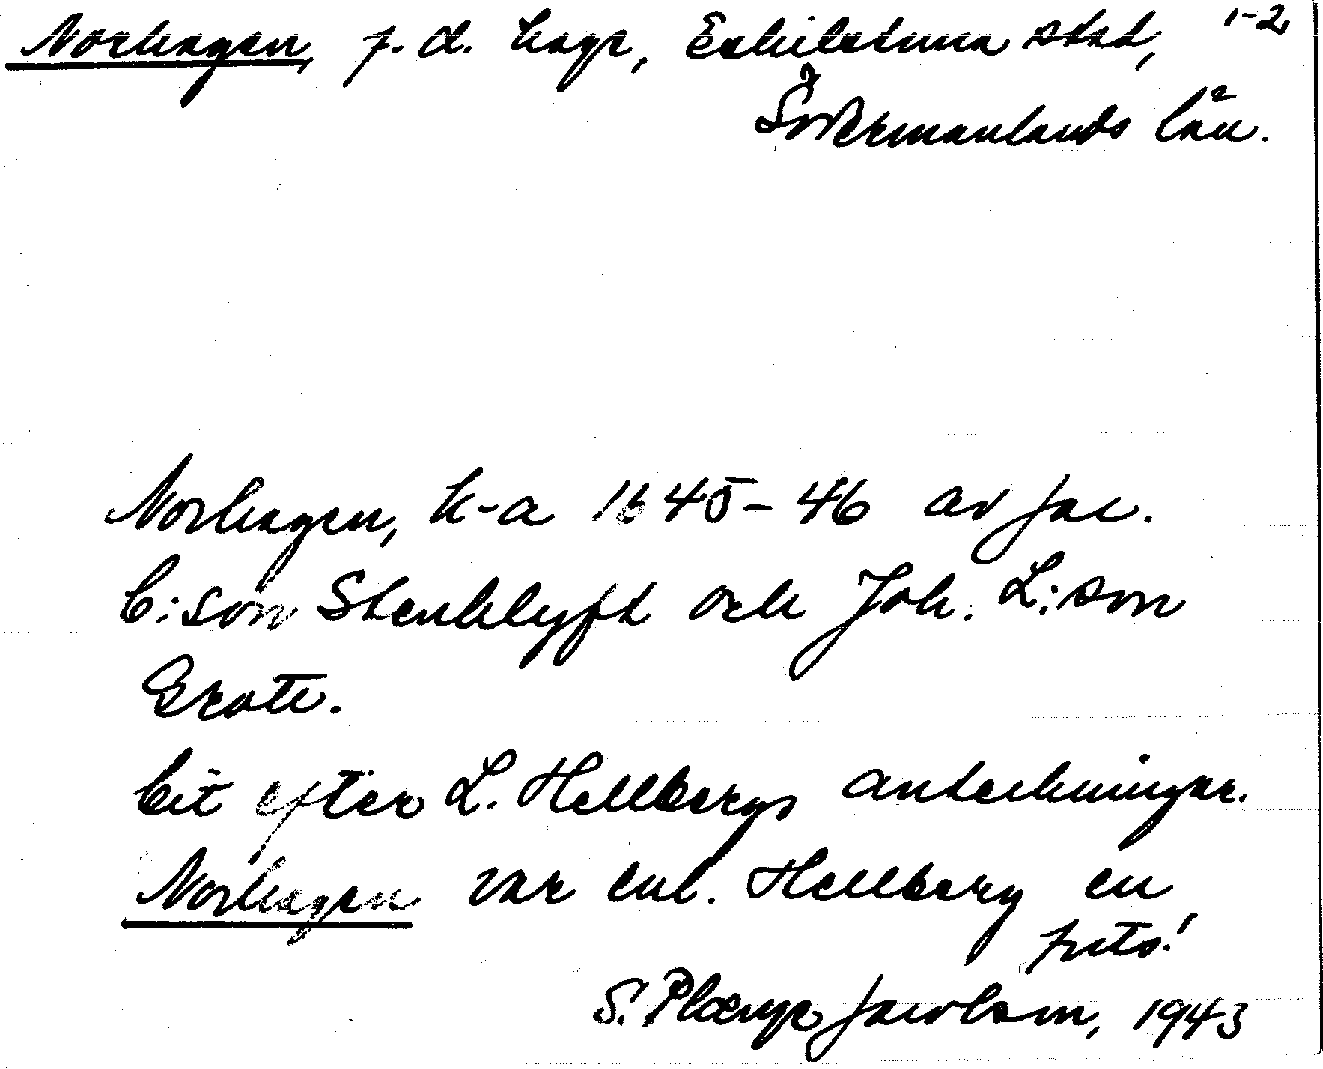 Norhagen, f. d. hage, Eskilstuna stad, 1-2
Södermanlands län.
Norhagen, k-a 1645-46 av Jac.
C:son Stenklyft och Joh. L:son
Grote.
Cit efter L. Hellbergs anteckningar.
Norhagen var enl. Hellberg en
puts!
S. Plænge Jacobson, 1943